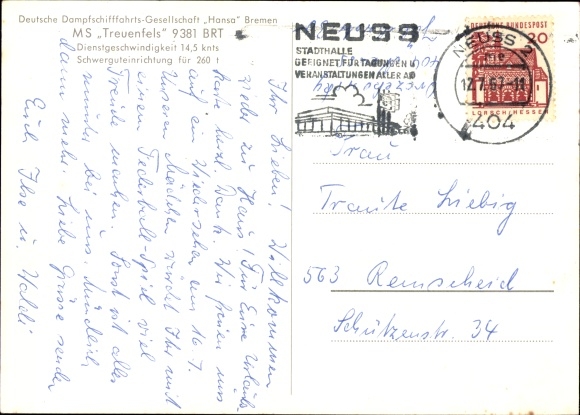 Deutsche Dampfschifffahrts-Gesellschaft „Hansa" Bremen
MS „Treuenfels" 9381 BRT
Dienstgeschwindigkeit 14,5 knts
Schwerguteinrichtung für 260 t
Ihr Lieben! Willkommen
wieder zu Haus! Für Eure Urlaubs-
karte herzl. Dank. Wir freuen uns
auf ein Wiedersehen am 16.7.
Unseren Mädchen würdet Ihr mit
einem Federball-Spiel viel
Freude machen. Sonst ist alles
munter bei uns. Mündlich
dann mehr. Liebe Grüsse senden
Euch Ilse u. Waldi
NEUSS
STADTHALLE
GEEIGNET FÜR TAGUNGEN U.
VERANSTALTUNGEN ALLER ART
NEUSS 2
12.7.67-11
404
DEUTSCHE BUNDESPOST
20
LORSCH/HESSEN
Frau
Traute Liebig
563 Remscheid
Schützenstr. 34